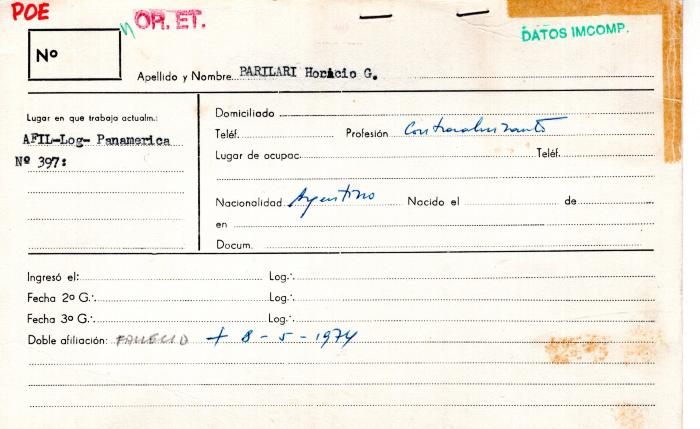 POE
OR. ET.
DATOS IMCOMP.
Nº
Apellido y Nombre PARILARI Horacio G.
Lugar en que trabaja actualm.:
AFIL-Log- Panamerica
Nº 397:
Domiciliado
Teléf. Profesión
Lugar de ocupac. Teléf.
Nacionalidad Argentino Nacido el de
en
Docum.
Ingresó el: Log∴
Fecha 2º G∴ Log∴
Fecha 3º G∴ Log∴
Doble afiliación: FALLECIO + 8-5-1974